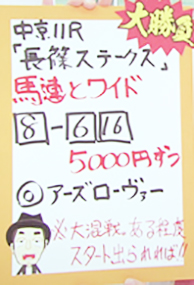 大勝負
中京11R
「長篠ステークス」
馬連とワイド
8-6 16
5000円ずつ
◎アーズローヴァー
※大混戦。ある程度
スタート出られれば!!